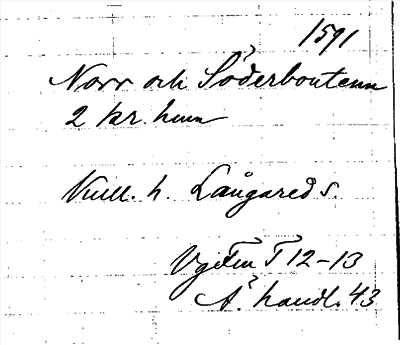 1591
Norr och Söderboutenn
2 kr. hem
Kull. h. Långareds.
Vg Fen T 12-13
Å. handl. 43